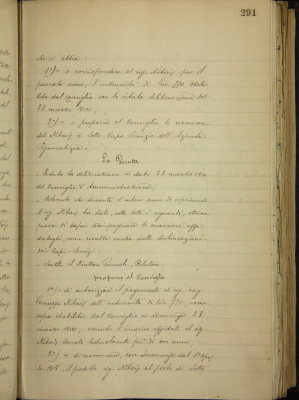 291
che si abbia:
1°/- a corrispondere al sig. Nibaij per il
passato anno, l'indennità di Lire 350 stabi-
lita dal Consiglio con la citata deliberazione del
28 marzo 1914;
2°/- a proporre al Consiglio la nomina
del Nibaij a Sotto Capo Servizio dell'Azienda
La Giunta
Veduta la deliberazione in data 28 marzo 1914
del Consiglio d'Amministrazione;
Ritenuto che durante l'intero anno di esperimento
il sig. Nibaij ha dato, sotto tutti i riguardi, ottima
prova di saper disimpegnare le mansioni affi-
dategli, come risulta anche dalle dichiarazioni
dei Capi-Servizi;
Sentito il Direttore Generale, Relatore
propone al Consiglio
1°/- di autorizzare il pagamento al sig. rag.
Giuseppe Nibaij dell'indennità di Lire 350, come
sopra stabilita dal Consiglio in adunanza 28
marzo 1914, avendo l'incarico affidato al sig.
Nibaij durato lodevolmente più di un anno;
2°/- di nominare, con decorrenza dal 1°
1915, il predetto sig. Nibaij al posto di Sotto